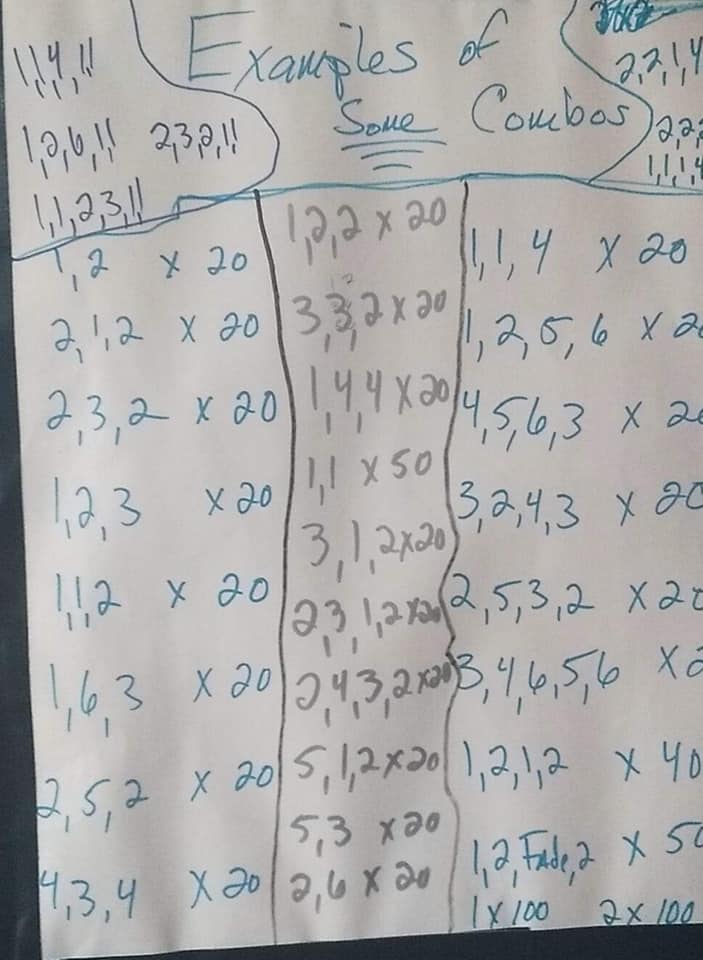 Examples of
Some Combos
1,1,4,!!
1,2,6,!! 2,3,2,!!
1,1,2,3,!!
2,2,1,4
2,2,2
1,1,1,4
1,2 x 20
2,1,2 x 20
2,3,2 x 20
1,2,3 x 20
1,1,2 x 20
1,6,3 x 20
2,5,2 x 20
4,3,4 x 20
1,2,2 x 20
3,3,2 x 20
1,4,4 x 20
1,1 x 50
3,1,2 x 20
2,3,1,2 x 20
2,4,3,2 x 20
5,1,2 x 20
5,3 x 20
2,6 x 20
1,1,4 x 20
1,2,5,6 x 2
4,5,6,3 x 2
3,2,4,3 x 20
2,5,3,2 x 20
3,4,6,5,6 x 2
1,2,1,2 x 40
1,2,Fade,2 x 50
1 x 100 2 x 100